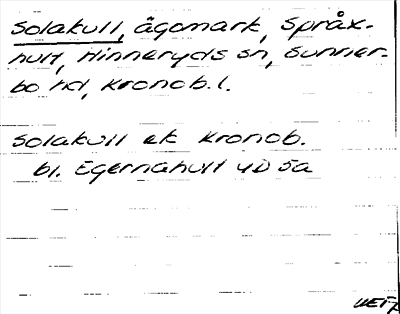 Solakull, ägomark, Språx-
hult, Hinneryds sn, Sunner-
bo hd, Kronob. l.
Solakull ek Kronob.
bl. Egernahult 4D 5a